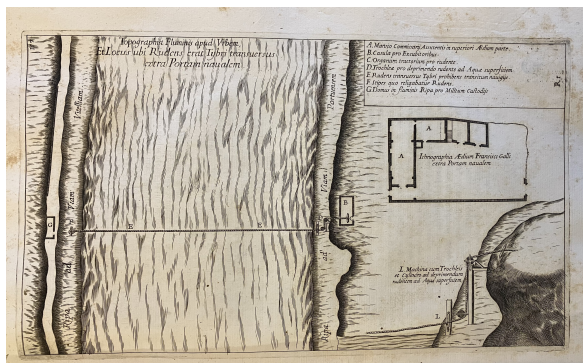 Topographia Fluminis apud Urbem
Et Locus ubi Rudens erat Tybri transversus
extra Portam navalem
A. Mansio Commissarij Assistentis in superiori Ædium parte.
B. Casula pro Excubitoribus.
C. Organum tractorium pro rudente.
D. Trochlea pro deprimendo rudente ad Aquæ superficiem.
E. Rudens transversus Tybri prohibens transitum navigijs.
F. Stipes quo religabatur Rudens.
G. Domus in fluminis Ripa pro Militum Custodijs
Ripa ad Viam
Ripa ad Viam Portuensem
A
A
Ichnographia Ædium Francisci Galli
extra Portam navalem
G
F
E
E
B
I. Machina cum Trochleis
et Cylindro ad deprimendum
rudentem ad Aquæ superficiem
I.